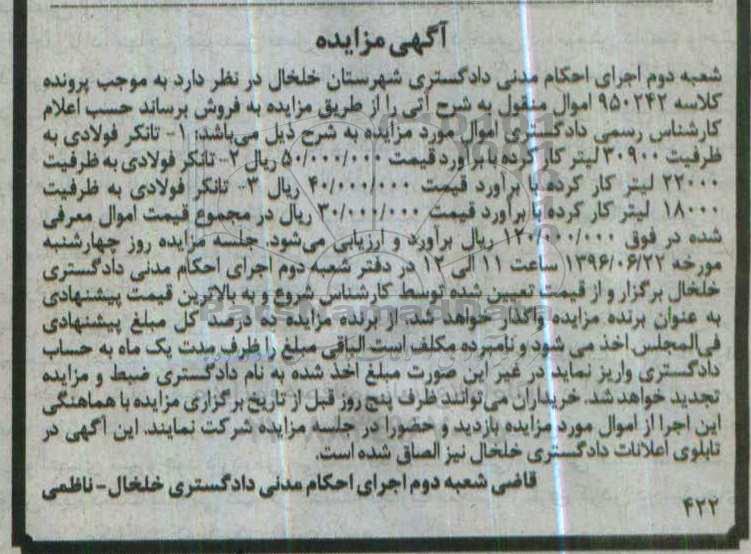 آگهی مزایده
شعبه دوم اجرای احکام مدنی دادگستری شهرستان خلخال در نظر دارد به موجب پرونده
کلاسه ۹۵۰۲۴۲ اموال منقول به شرح آتی را از طریق مزایده به فروش برساند حسب اعلام
کارشناس رسمی دادگستری اموال مورد مزایده به شرح ذیل می‌باشد: ۱- تانکر فولادی به
ظرفیت ۳۰۹۰۰ لیتر کار کرده با برآورد قیمت ۵۰/۰۰۰/۰۰۰ ریال ۲- تانکر فولادی به ظرفیت
۲۲۰۰۰ لیتر کار کرده با برآورد قیمت ۴۰/۰۰۰/۰۰۰ ریال ۳- تانکر فولادی به ظرفیت
۱۸۰۰۰ لیتر کار کرده با برآورد قیمت ۳۰/۰۰۰/۰۰۰ ریال در مجموع قیمت اموال معرفی
شده در فوق ۱۲۰/۰۰۰/۰۰۰ ریال برآورد و ارزیابی می‌شود. جلسه مزایده روز چهارشنبه
مورخه ۱۳۹۶/۰۶/۲۲ ساعت ۱۱ الی ۱۲ در دفتر شعبه دوم اجرای احکام مدنی دادگستری
خلخال برگزار و از قیمت تعیین شده توسط کارشناس شروع و به بالاترین قیمت پیشنهادی
به عنوان برنده مزایده واگذار خواهد شد. از برنده مزایده ده درصد کل مبلغ پیشنهادی
فی‌المجلس اخذ می شود و نامبرده مکلف است الباقی مبلغ را ظرف مدت یک ماه به حساب
دادگستری واریز نماید در غیر این صورت مبلغ اخذ شده به نام دادگستری ضبط و مزایده
تجدید خواهد شد. خریداران می‌توانند ظرف پنج روز قبل از تاریخ برگزاری مزایده با هماهنگی
این اجرا از اموال مورد مزایده بازدید و حضورا در جلسه مزایده شرکت نمایند. این آگهی در
تابلوی اعلانات دادگستری خلخال نیز الصاق شده است.
قاضی شعبه دوم اجرای احکام مدنی دادگستری خلخال - ناظمی
۴۲۲